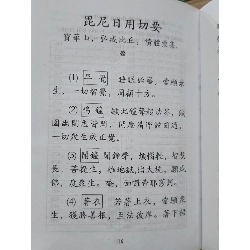 毘尼日用切要
寶華山，弘戒比丘，讀體彙集
(1) 早覺 睡眠始寤，當願眾
生，一切智覺，周顧十方。
(2) 鳴鐘 願此鐘聲超法界，鐵
圍幽闇悉皆聞，聞塵清淨證圓通，
一切眾生成正覺。
(3) 聞鐘 聞鐘聲，煩惱輕，智慧
長，菩提生，離地獄，出火坑，願成
佛，度眾生。唵，伽囉帝耶莎訶。
(4) 著衣 若著上衣，當願眾
生，獲勝善根，至法彼岸。著下裙